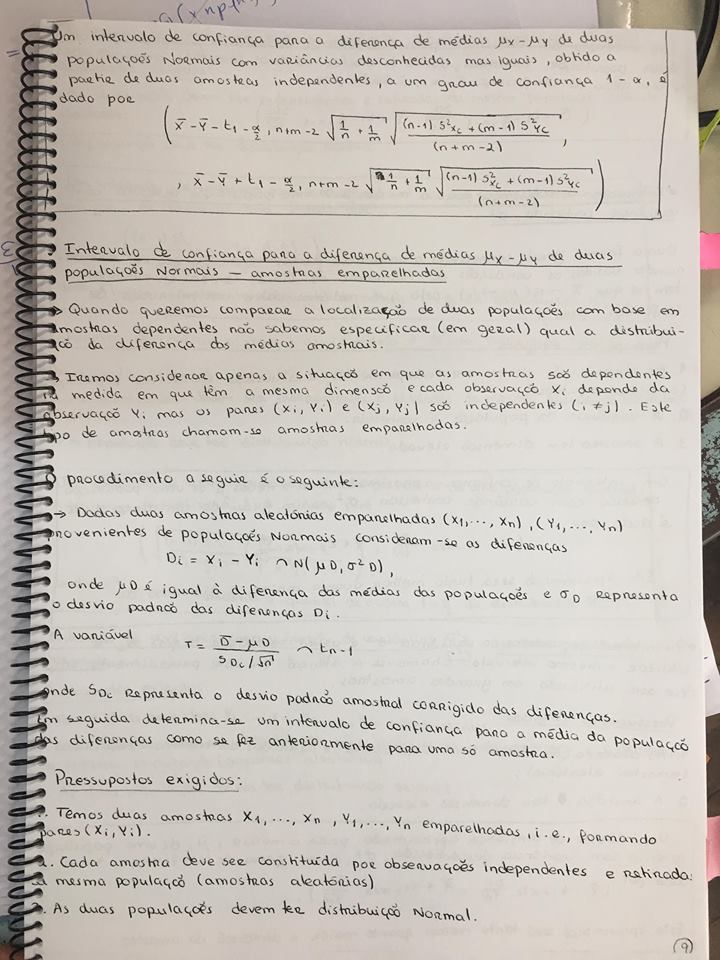 Um intervalo de confiança para a diferença de médias μx-μy de duas
populações Normais com variâncias desconhecidas mas iguais, obtido a
partir de duas amostras independentes, a um grau de confiança 1-α, é
dado por
( X̄ - Ȳ - t1-α/2, n+m-2 √(1/n + 1/m) √(((n-1) S²xc + (m-1) S²yc)/(n+m-2)) ,
, X̄ - Ȳ + t1-α/2, n+m-2 √(1/n + 1/m) √(((n-1) S²xc + (m-1) S²yc)/(n+m-2)) )
Intervalo de confiança para a diferença de médias μx-μy de duas
populações Normais - amostras emparelhadas
→ Quando queremos comparar a localização de duas populações com base em
amostras dependentes não sabemos especificar (em geral) qual a distribui-
ção da diferença das médias amostrais.
→ Iremos considerar apenas a situação em que as amostras são dependentes
na medida em que têm a mesma dimensão e cada observação Xi depende da
observação Yi mas os pares (Xi, Yi) e (Xj, Yj) são independentes (i≠j). Este
tipo de amostras chamam-se amostras emparelhadas.
O procedimento a seguir é o seguinte:
→ Dadas duas amostras aleatórias emparelhadas (X1,..., Xn), (Y1,..., Yn)
provenientes de populações Normais consideram-se as diferenças
Di = Xi - Yi ∩ N(μD, σ²D),
onde μD é igual à diferença das médias das populações e σD representa
o desvio padrão das diferenças Di.
A variável
T = (D̄ - μD)/(SDc/√n) ∩ tn-1
onde SDc representa o desvio padrão amostral corrigido das diferenças.
Em seguida determina-se um intervalo de confiança para a média da população
das diferenças como se fez anteriormente para uma só amostra.
Pressupostos exigidos:
1. Temos duas amostras X1,..., Xn, Y1,..., Yn emparelhadas, i.e., formando
pares (Xi, Yi).
2. Cada amostra deve ser constituída por observações independentes e retirada
mesma população (amostras aleatórias)
3. As duas populações devem ter distribuição Normal.
9